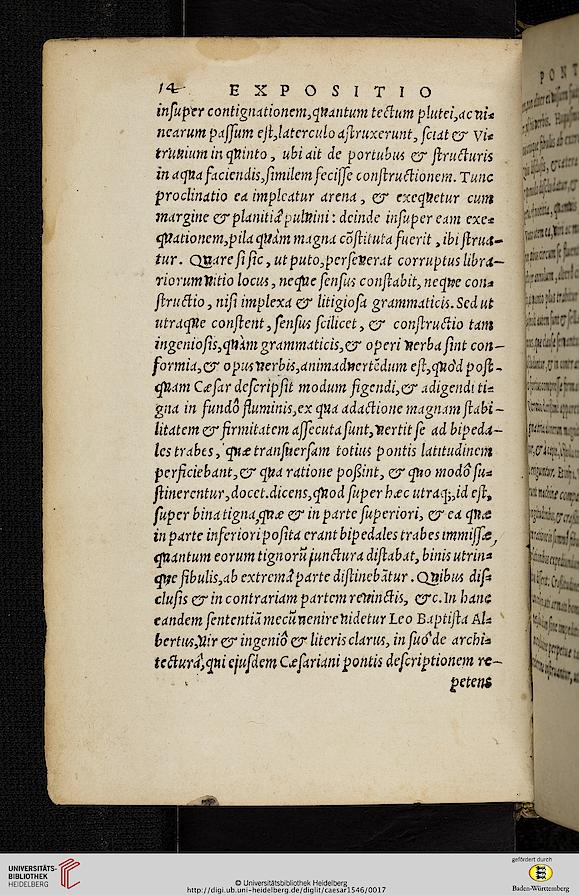 14 EXPOSITIO
inſuper contignationem,quantum tectum plutei,ac ui=
nearum paſſum eſt,laterculo aſtruxerunt, ſciat & Vi=
truuium in quinto , ubi ait de portubus & ſtructuris
in aqua faciendis,ſimilem feciſſe conſtructionem. Tunc
proclinatio ea impleatur arena , & exequetur cum
margine & planitiâ puluini : deinde inſuper eam exe=
quationem,pila quàm magna cõſtituta fuerit , ibi ſtrua=
tur . Quare ſi ſic , ut puto,perſeuerat corruptus libra=
riorum uitio locus , neque ſenſus conſtabit, neque con=
ſtructio , niſi implexa & litigioſa grammaticis. Sed ut
utraque conſtent , ſenſus ſcilicet , & conſtructio tam
ingenioſis,quàm grammaticis,& operi uerba ſint con=
formia,& opus uerbis,animaduertẽdum eſt,quòd poſt=
quam Cæſar deſcripſit modum figendi,& adigendi ti=
gna in fundô fluminis,ex qua adactione magnam ſtabi=
litatem & firmitatem aſſecuta ſunt,uertit ſe ad bipeda=
les trabes , quæ tranſuerſam totius pontis latitudinem
perficiebant,& qua ratione poßint, & quo modô ſu=
ſtinerentur,docet.dicens,quod ſuper hæc utraq;,id eſt,
ſuper bina tigna,quæ & in parte ſuperiori, & ea quæ
in parte inferiori poſita erant bipedales trabes immiſſæ,
quantum eorum tignorũ junctura diſtabat, binis utrin=
que fibulis,ab extremâ parte diſtinebãtur . Quibus diſ=
cluſis & in contrariam partem reuinctis, &c. In hanc
eandem ſententiã mecũ uenire uidetur Leo Baptiſta Al=
bertus,uir & ingeniô & literis clarus, in ſuô de archi=
tecturâ,qui ejuſdem Cæſariani pontis deſcriptionem re=
petens
PONT
UNIVERSITÄTS-
BIBLIOTHEK
HEIDELBERG
© Universitätsbibliothek Heidelberg
http://digi.ub.uni-heidelberg.de/diglit/caesar1546/0017
gefördert durch
Baden-Württemberg